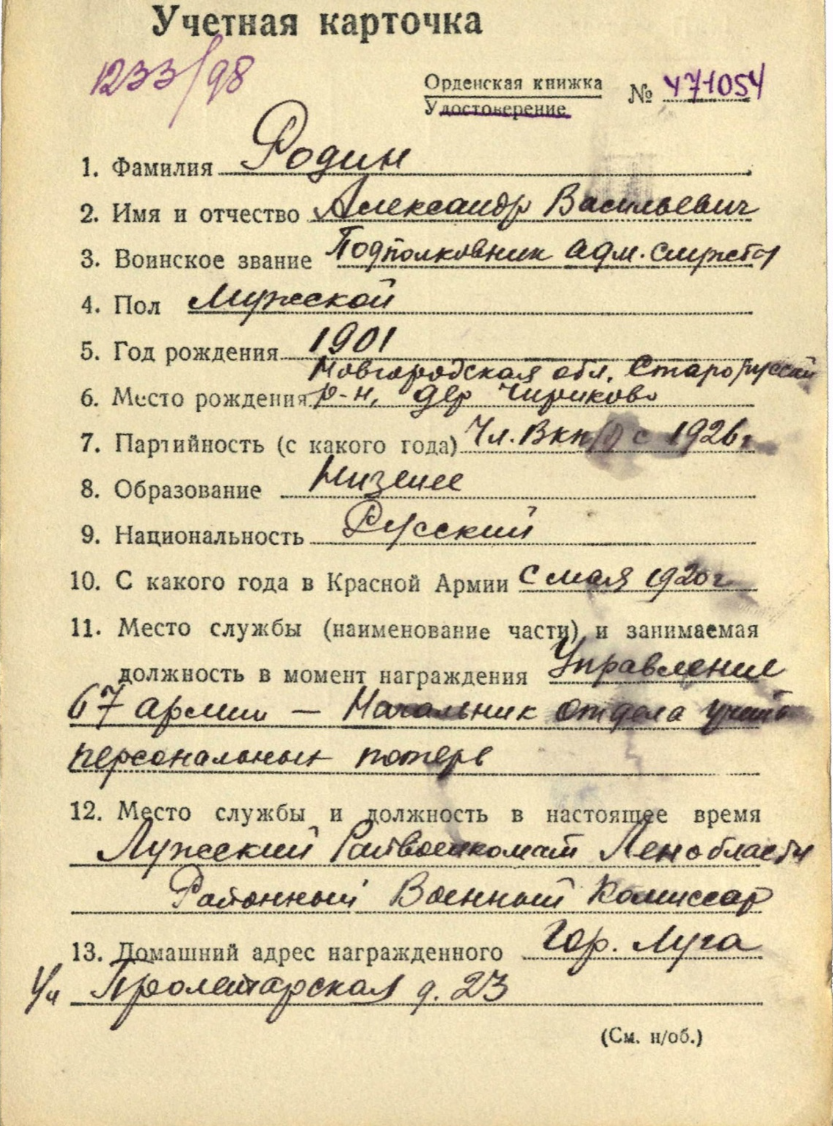 Учетная карточка
1233/98
Орденская книжка № 471054
Удостоверение
1. Фамилия Родин
2. Имя и отчество Александр Васильевич
3. Воинское звание Подполковник адм. службы
4. Пол Мужской
5. Год рождения 1901
Новгородская обл, Старорусский
6. Место рождения р-н, дер Чириково
7. Партийность (с какого года) Чл. Вкп/б с 1926г
8. Образование Низшее
9. Национальность Русский
10. С какого года в Красной Армии С мая 1920г
11. Место службы (наименование части) и занимаемая
должность в момент награждения Управление
67 армии — Начальник отдела учета
персональных потерь
12. Место службы и должность в настоящее время
Лужский Райвоенкомат Ленобласти
Районный Военный Комиссар
13. Домашний адрес награжденного Гор. Луга
Ул Пролетарская д. 23
(См. н/об.)